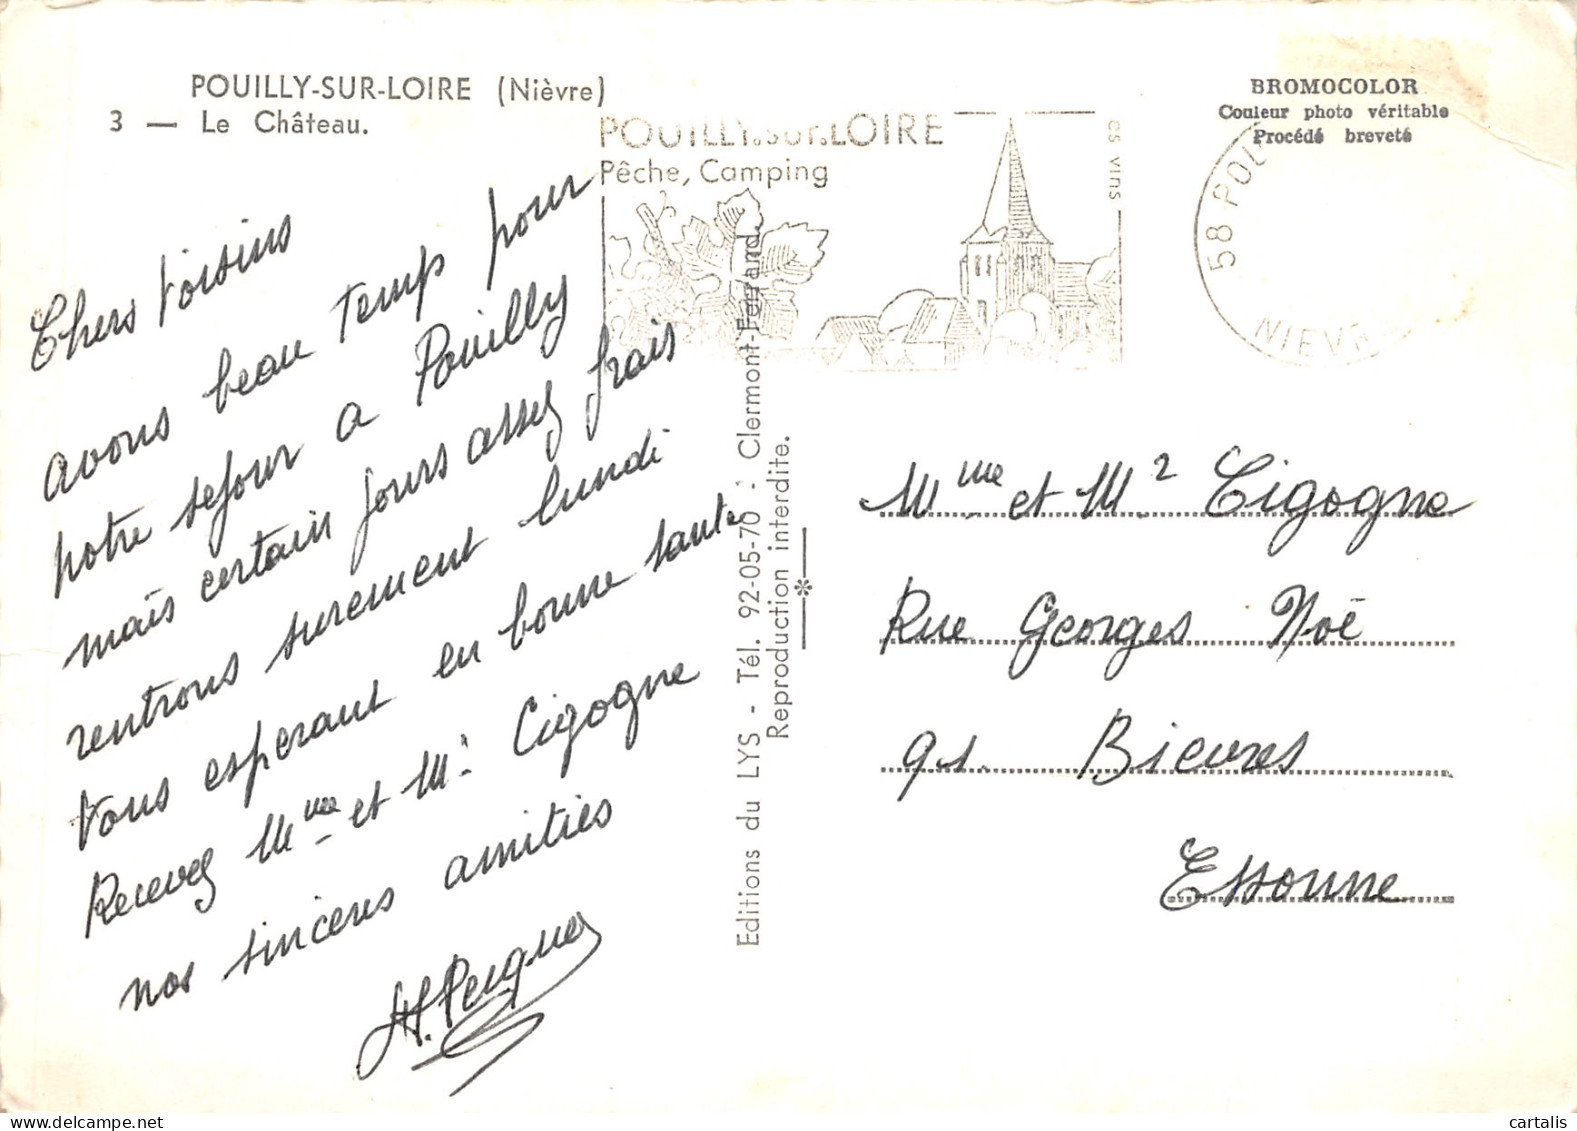 POUILLY-SUR-LOIRE (Nièvre)
3 — Le Château.
Chers Voisins
avons beau temp pour
notre sejour a Pouilly
mais certain jours assez frais
rentrons surement lundi
Vous esperant en bonne sante
Recevez Mme et Mr Cigogne
nos sinceres amitiés
POUILLY.SUR.LOIRE
Pêche, Camping
es vins
Editions du LYS - Tél. 92-05-70 - Clermont-Ferrand.
Reproduction interdite.
BROMOCOLOR
Couleur photo véritable
Procédé breveté
58 POU
NIEVR
Mme et Mr Cigogne
Rue Georges Noë
91. Bievres
Essonne
cartalis